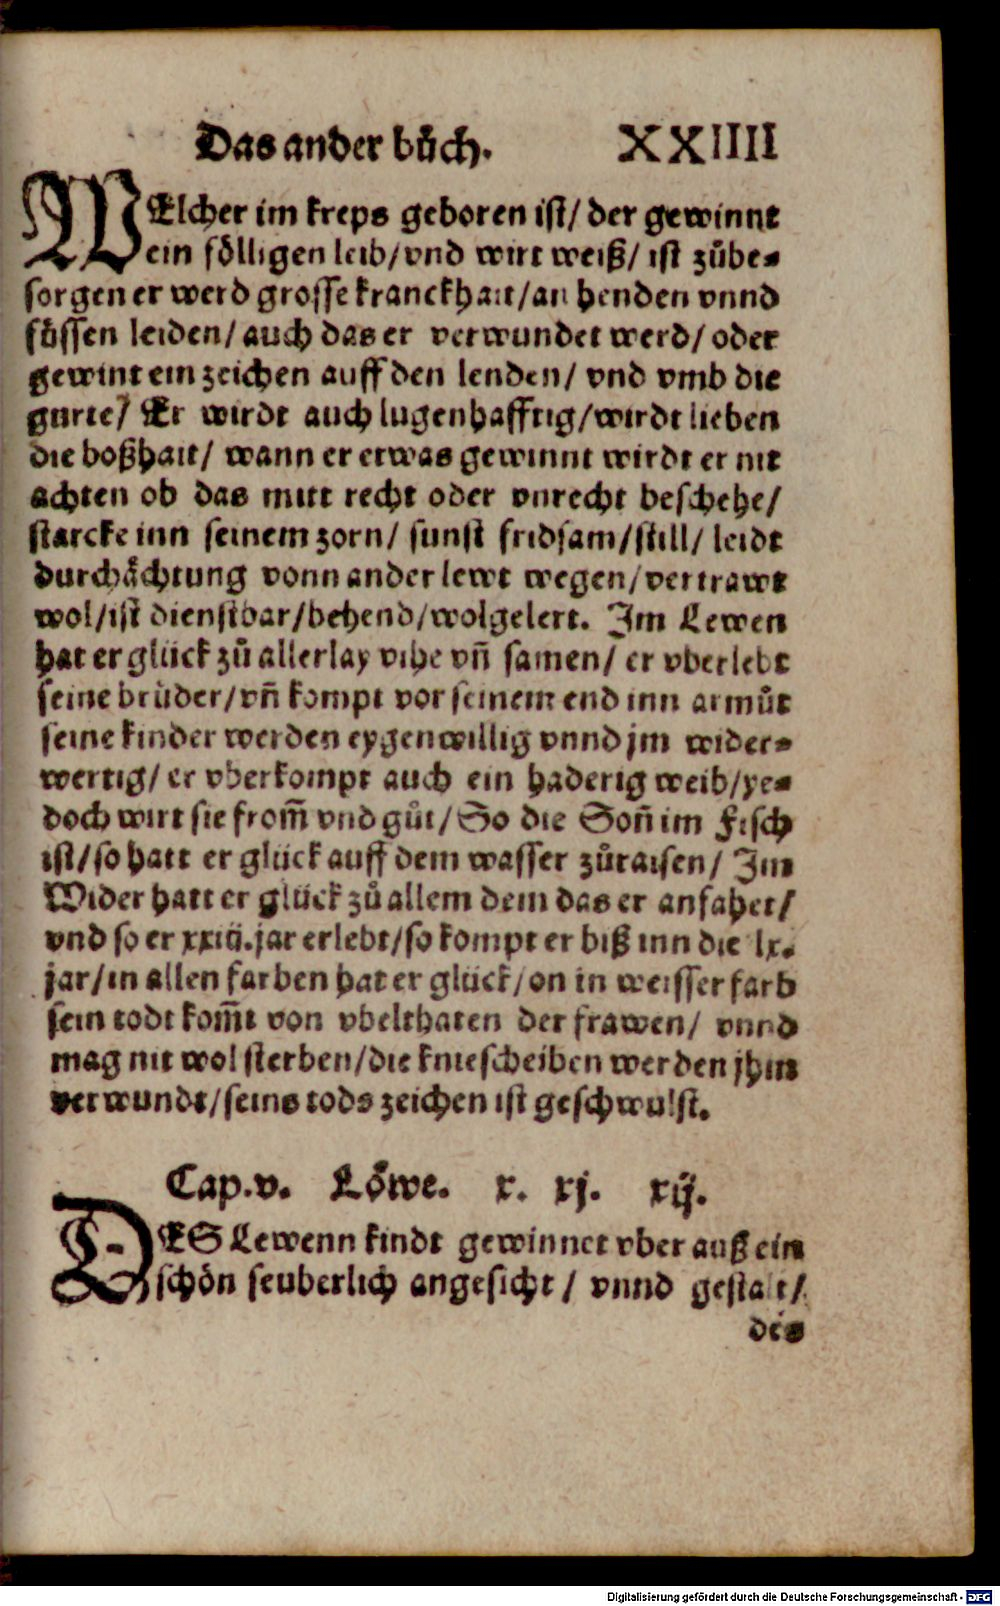 Das ander bůch. XXIIII
WElcher im kreps geboren ist/ der gewinnt
ein fölligen leib/vnd wirt weiß/ ist zůbe-
sorgen er werd grosse kranckhait/an henden vnnd
füssen leiden/ auch das er verwundet werd/ oder
gewint ein zeichen auff den lenden/ vnd vmb die
gurte/ Er wirdt auch lugenhafftig/wirdt lieben
die boßhait/ wann er etwas gewinnt wirdt er nit
achten ob das mitt recht oder vnrecht beschehe/
starcke inn seinem zorn/ sunst fridsam/still/ leidt
durchåchtung vonn ander lewt wegen/vertrawt
wol/ist dienstbar/behend/wolgelert. Im Lewen
hat er glück zů allerlay vihe vñ samen/ er vberlebt
seine brüder/vñ kompt vor seinem end inn armůt
seine kinder werden eygenwillig vnnd jm wider-
wertig/ er vberkompt auch ein haderig weib/ye-
doch wirt sie from̃ vnd gůt/So die Soñ im Fisch
ist/so hatt er glück auff dem wasser zůraisen/ Im
Wider hatt er glück zů allem dem das er anfahet/
vnd so er xxiij.jar erlebt/so kompt er biß inn die lx.
jar/in allen farben hat er glück/on in weisser farb
sein todt kom̃t von vbelthaten der frawen/ vnnd
mag nit wol sterben/die kniescheiben werden jhm
verwundt/seins tods zeichen ist geschwulst.
Cap.v. Löwe. x. xj. xij.
DES Lewenn kindt gewinnet vber auß ein
schön seuberlich angesicht / vnnd gestalt/
des
Digitalisierung gefördert durch die Deutsche Forschungsgemeinschaft - DFG